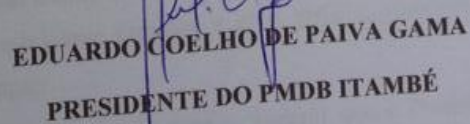 EDUARDO COELHO DE PAIVA GAMA
PRESIDENTE DO PMDB ITAMBÉ